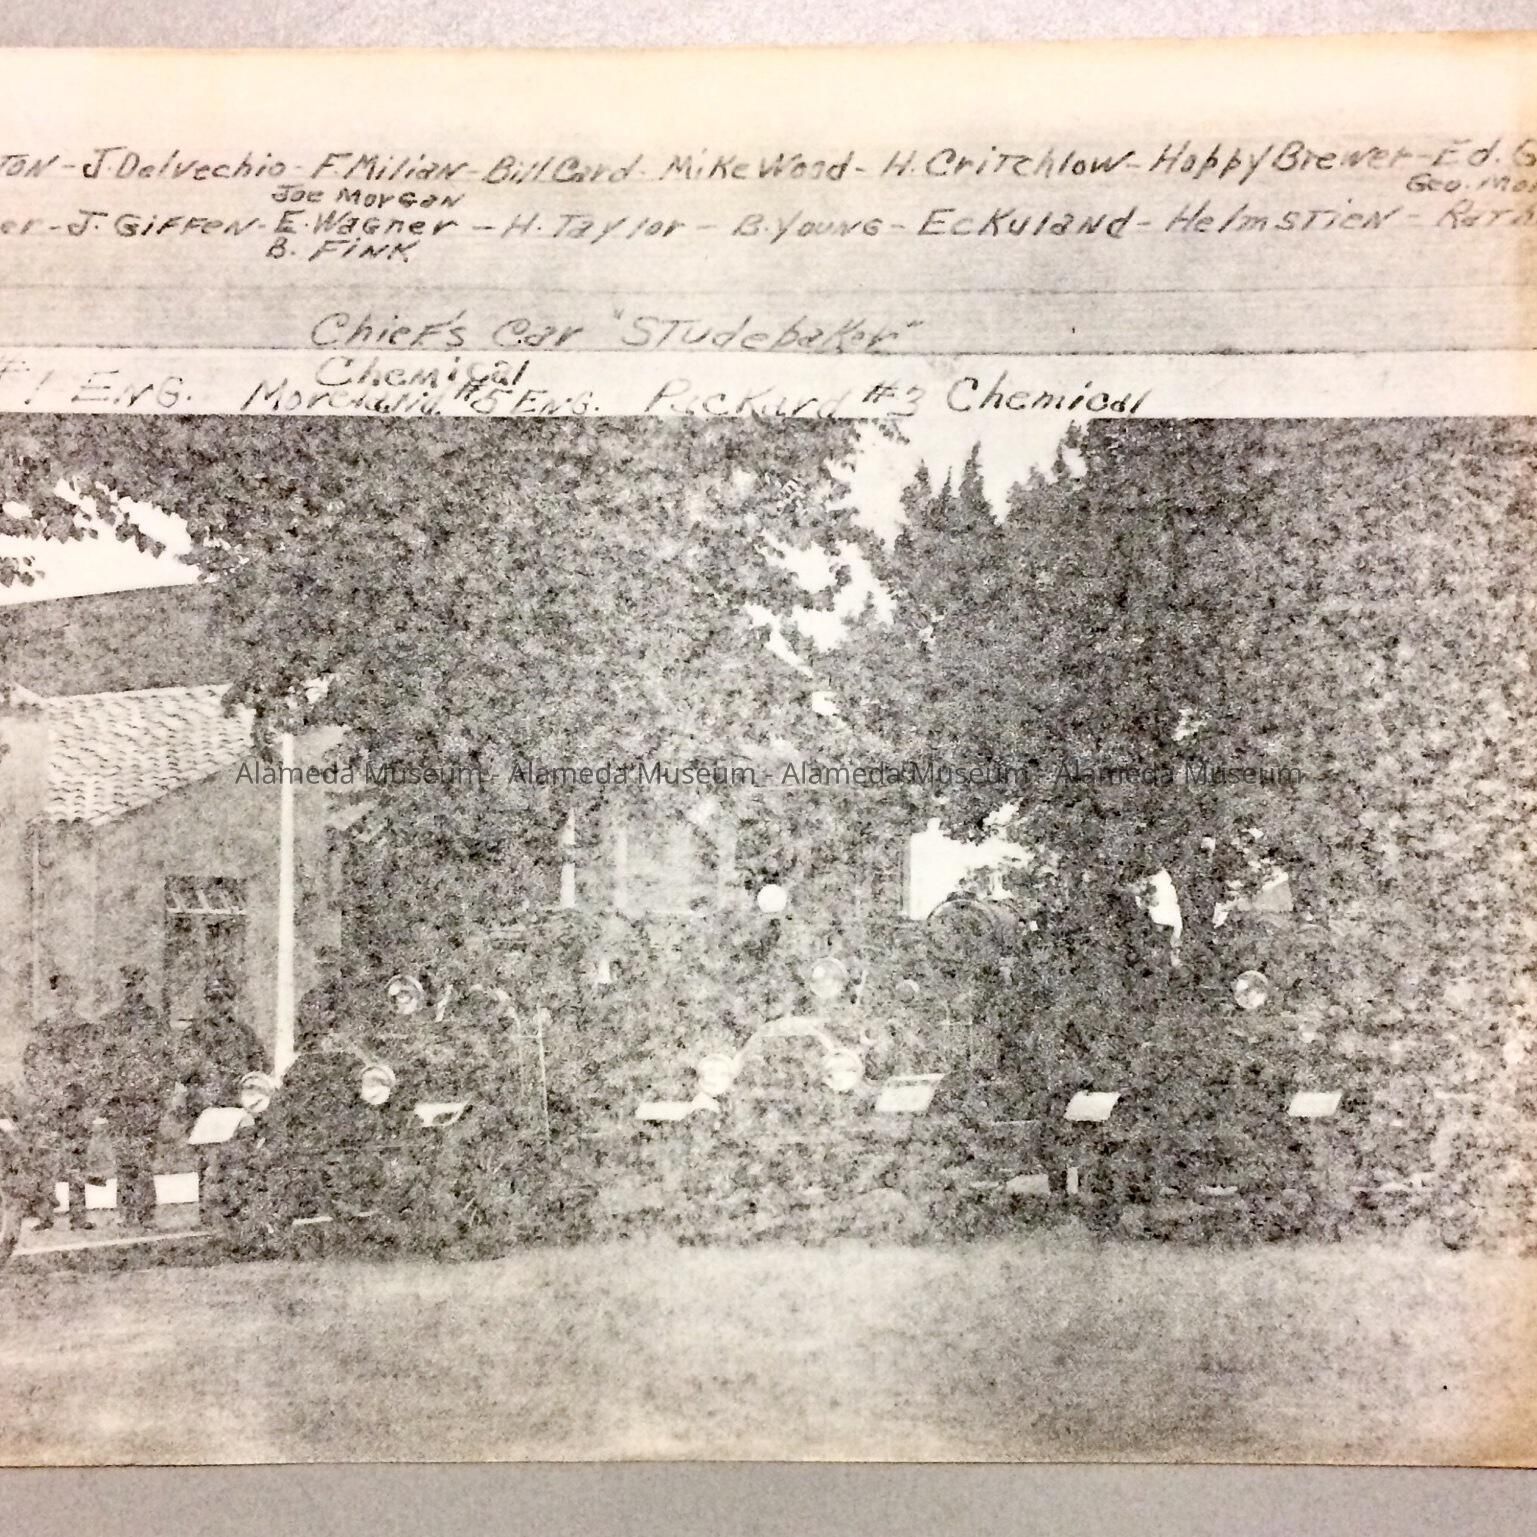 TON - J. Delvechio - F. Milian - Bill Card - Mike Wood - H. Critchlow - Happy Brewer - Ed. G
Joe Morgan
Geo. Mor
er - J. Giffen - E. Wagner - H. Taylor - B. Young - Eckuland - Helmstien - Rat
B. Fink
Chief's Car "Studebaker"
Chemical
#1 Eng. Moreland #5 Eng. Packard #3 Chemical
Alameda Museum - Alameda Museum - Alameda Museum - Alameda Museum